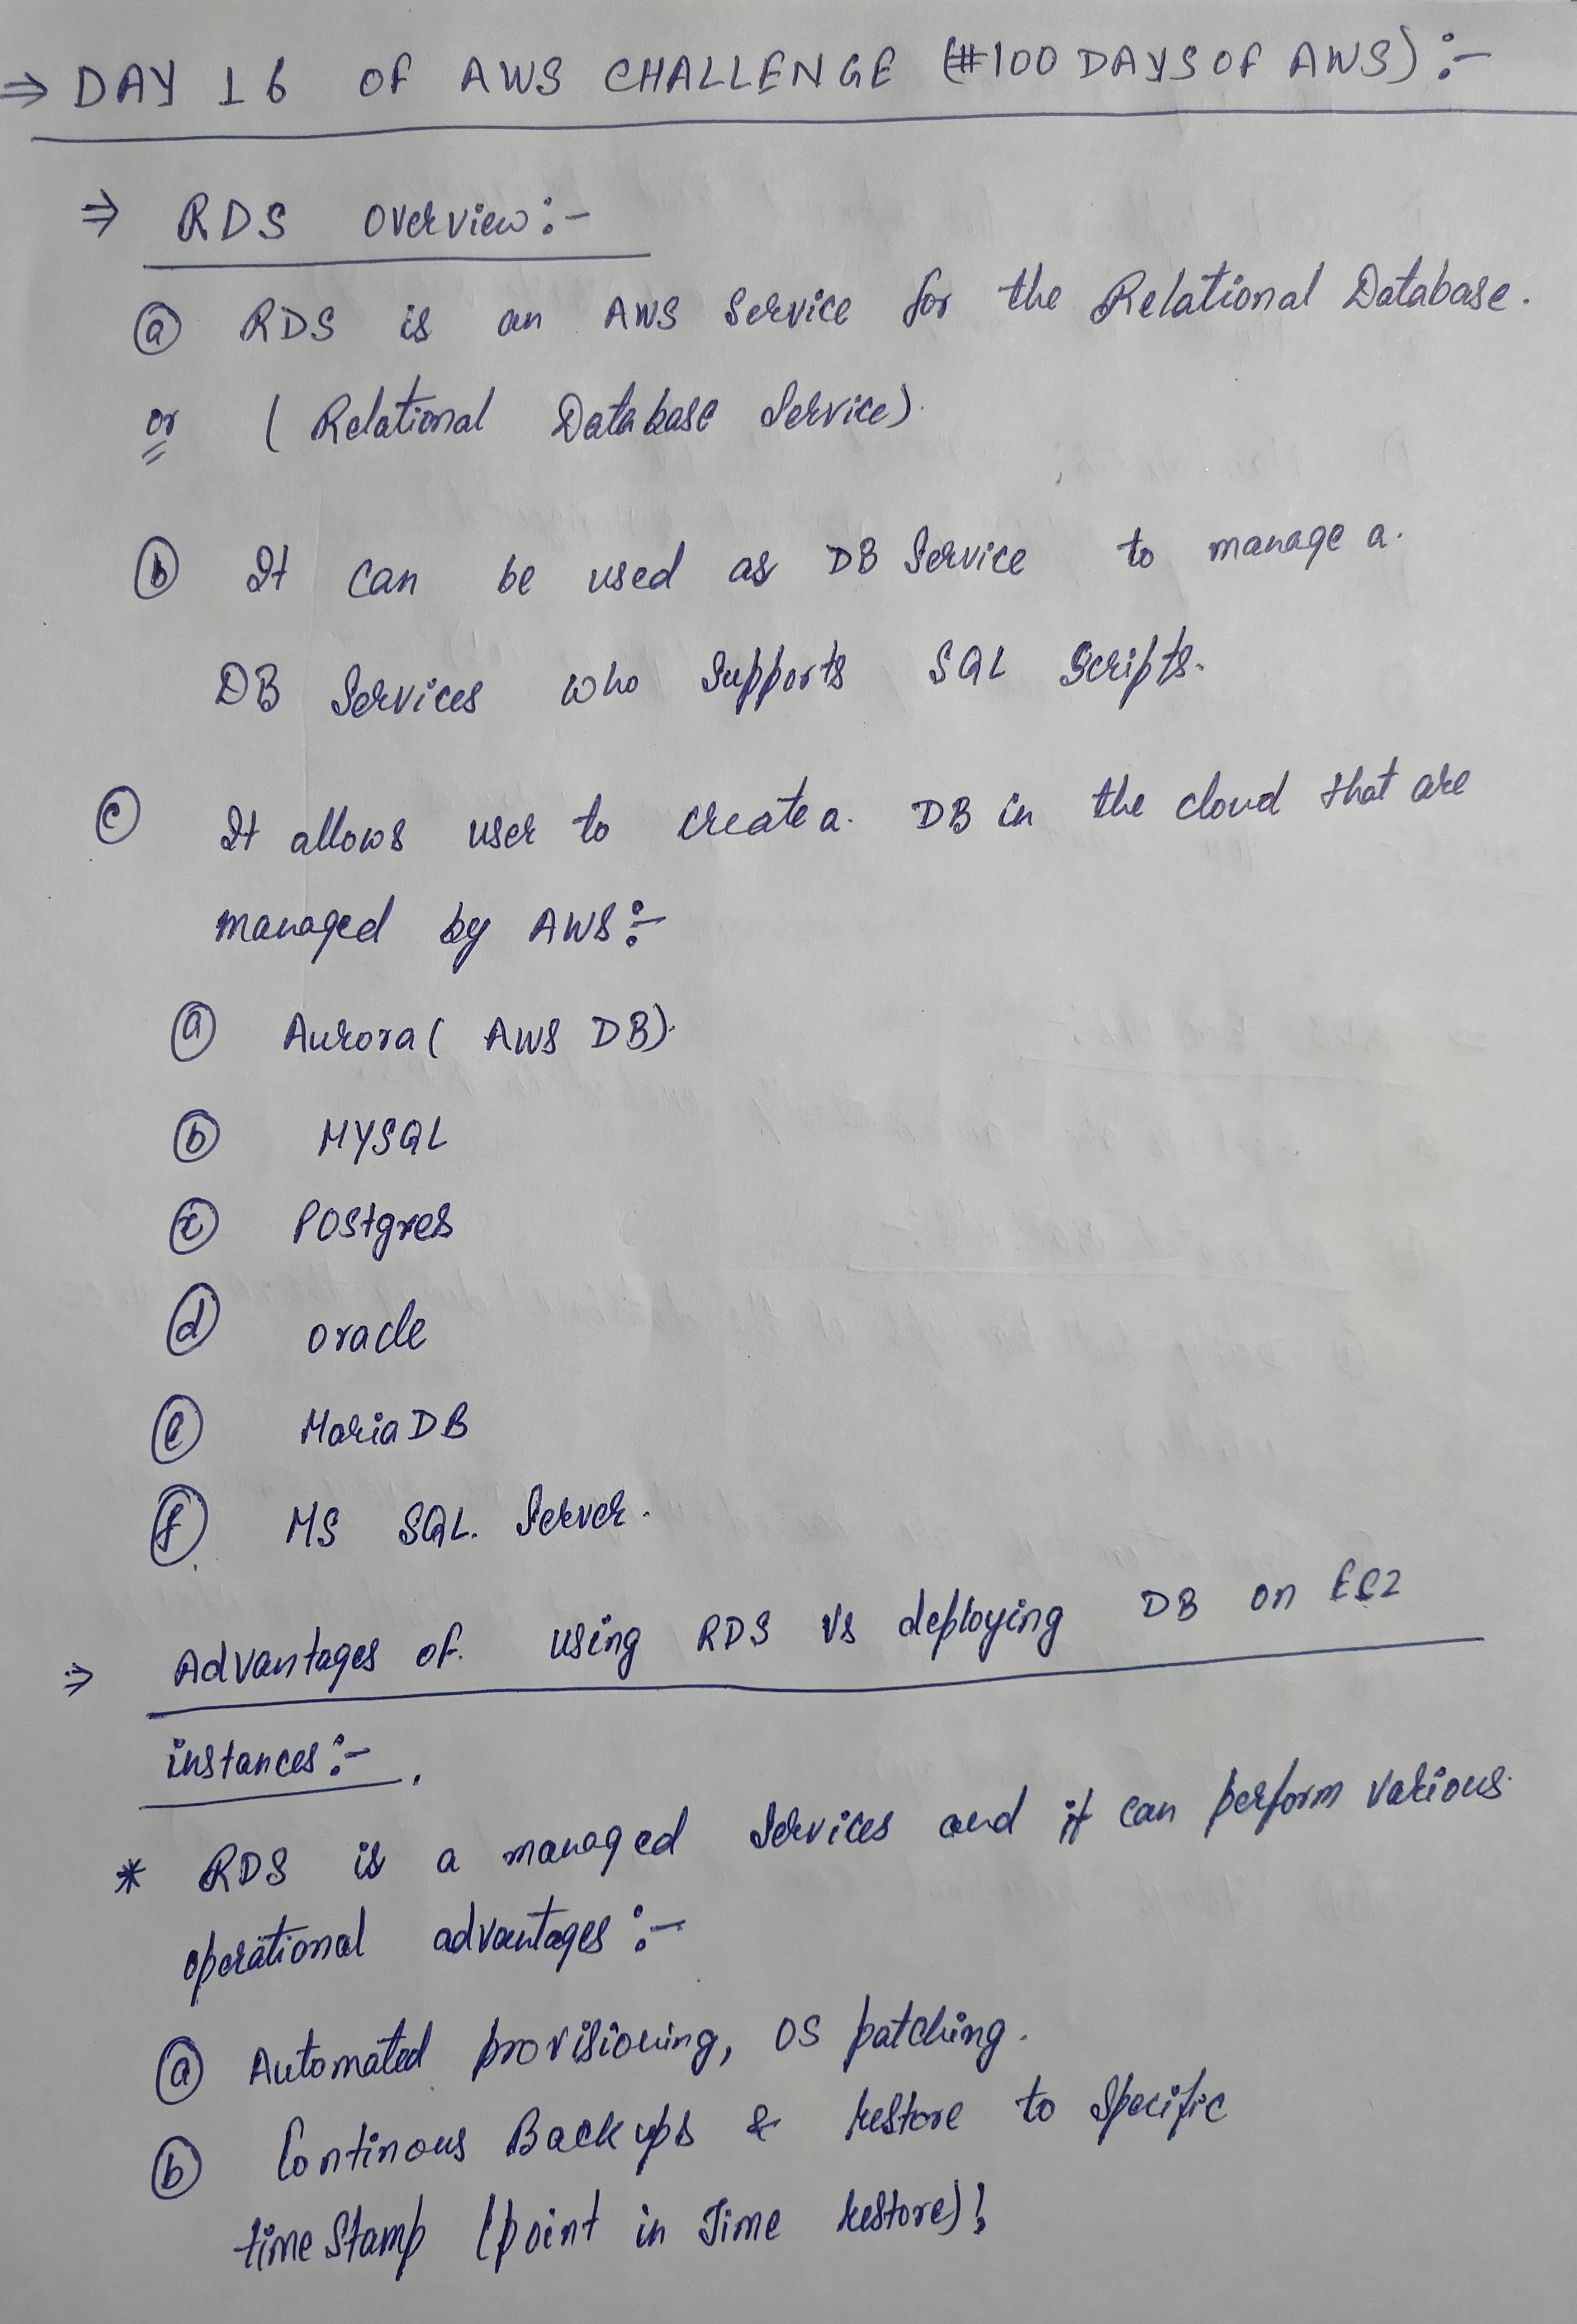 ⇒ DAY 16 OF AWS CHALLENGE (#100 DAYS OF AWS) :-
⇒ RDS overview :-
ⓐ RDS is an AWS Service for the Relational Database.
or ( Relational Database Service).
ⓑ It can be used as DB Service to manage a.
DB Services who Supports SQL Scripts.
ⓒ It allows user to create a. DB in the cloud that are
managed by AWS :-
ⓐ Aurora ( AWS DB).
ⓑ MYSQL
ⓒ Postgres
ⓓ oracle
ⓔ MariaDB
ⓕ MS SQL. Server.
⇒ Advantages of. using RDS Vs deploying DB on EC2
instances :-
* RDS is a managed Services and it can perform various.
operational advantages :-
ⓐ Automated provisioning, OS patching.
ⓑ Continous Backups & Restore to Specific
time Stamp (point in Time Restore)!